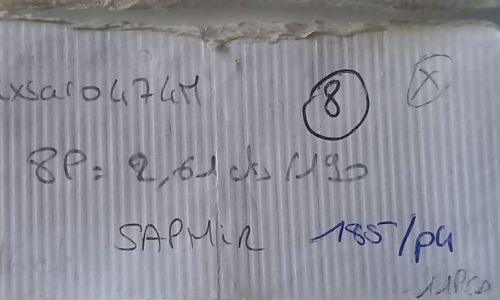 xsar0474M 8 X
8P= 2,61 cts /190
SAPHIR 185/p4
11PCS